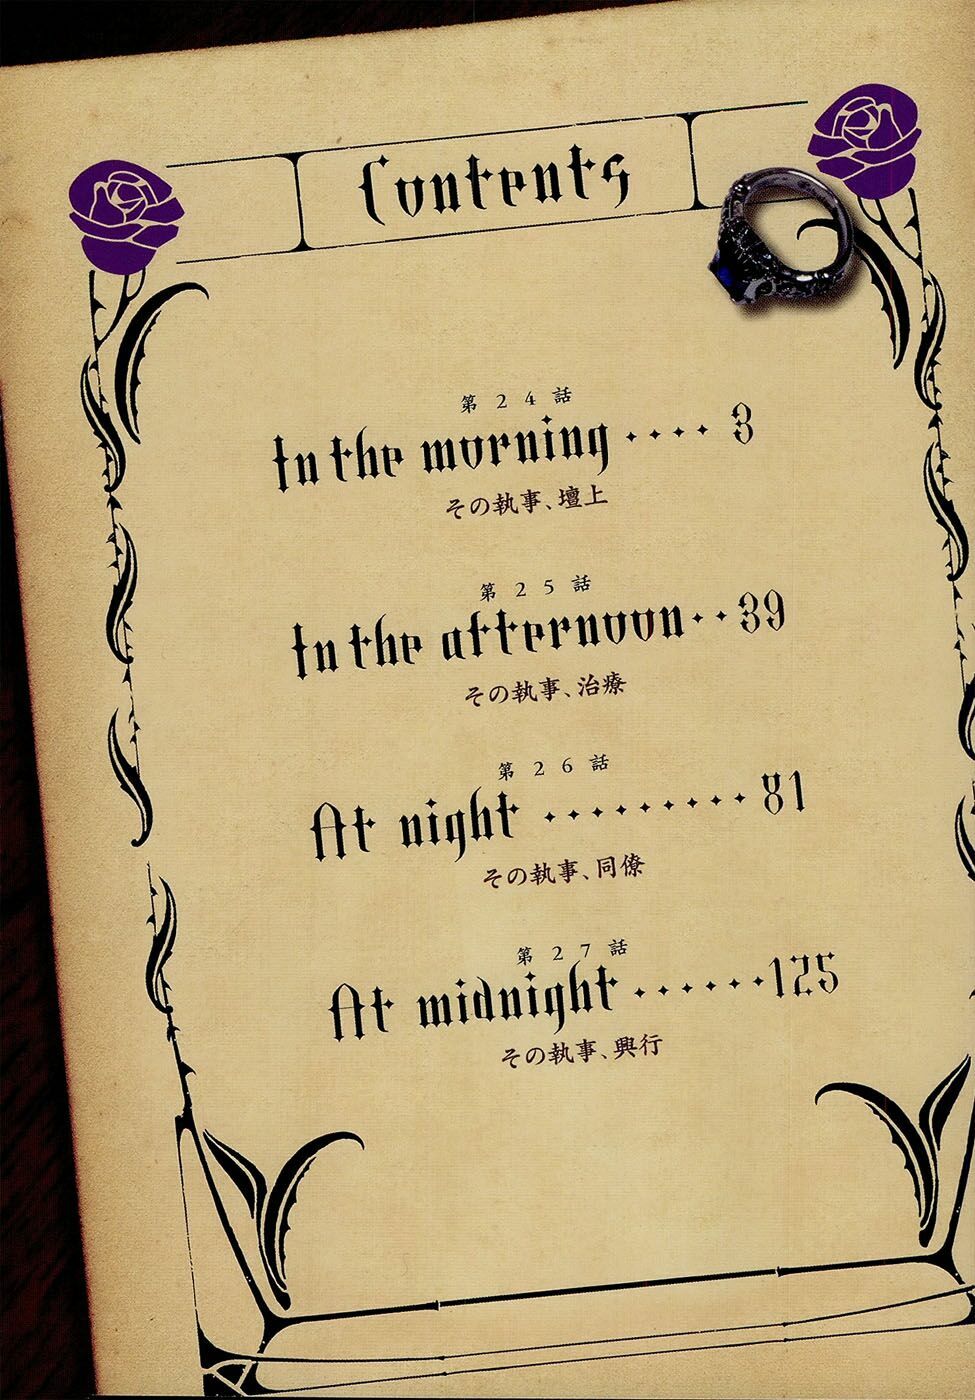 Contents
第24話
In the morning ････ 3
その執事、壇上
第25話
In the afternoon ･･ 39
その執事、治療
第26話
At night ･････････ 81
その執事、同僚
第27話
At midnight ･･････ 125
その執事、興行